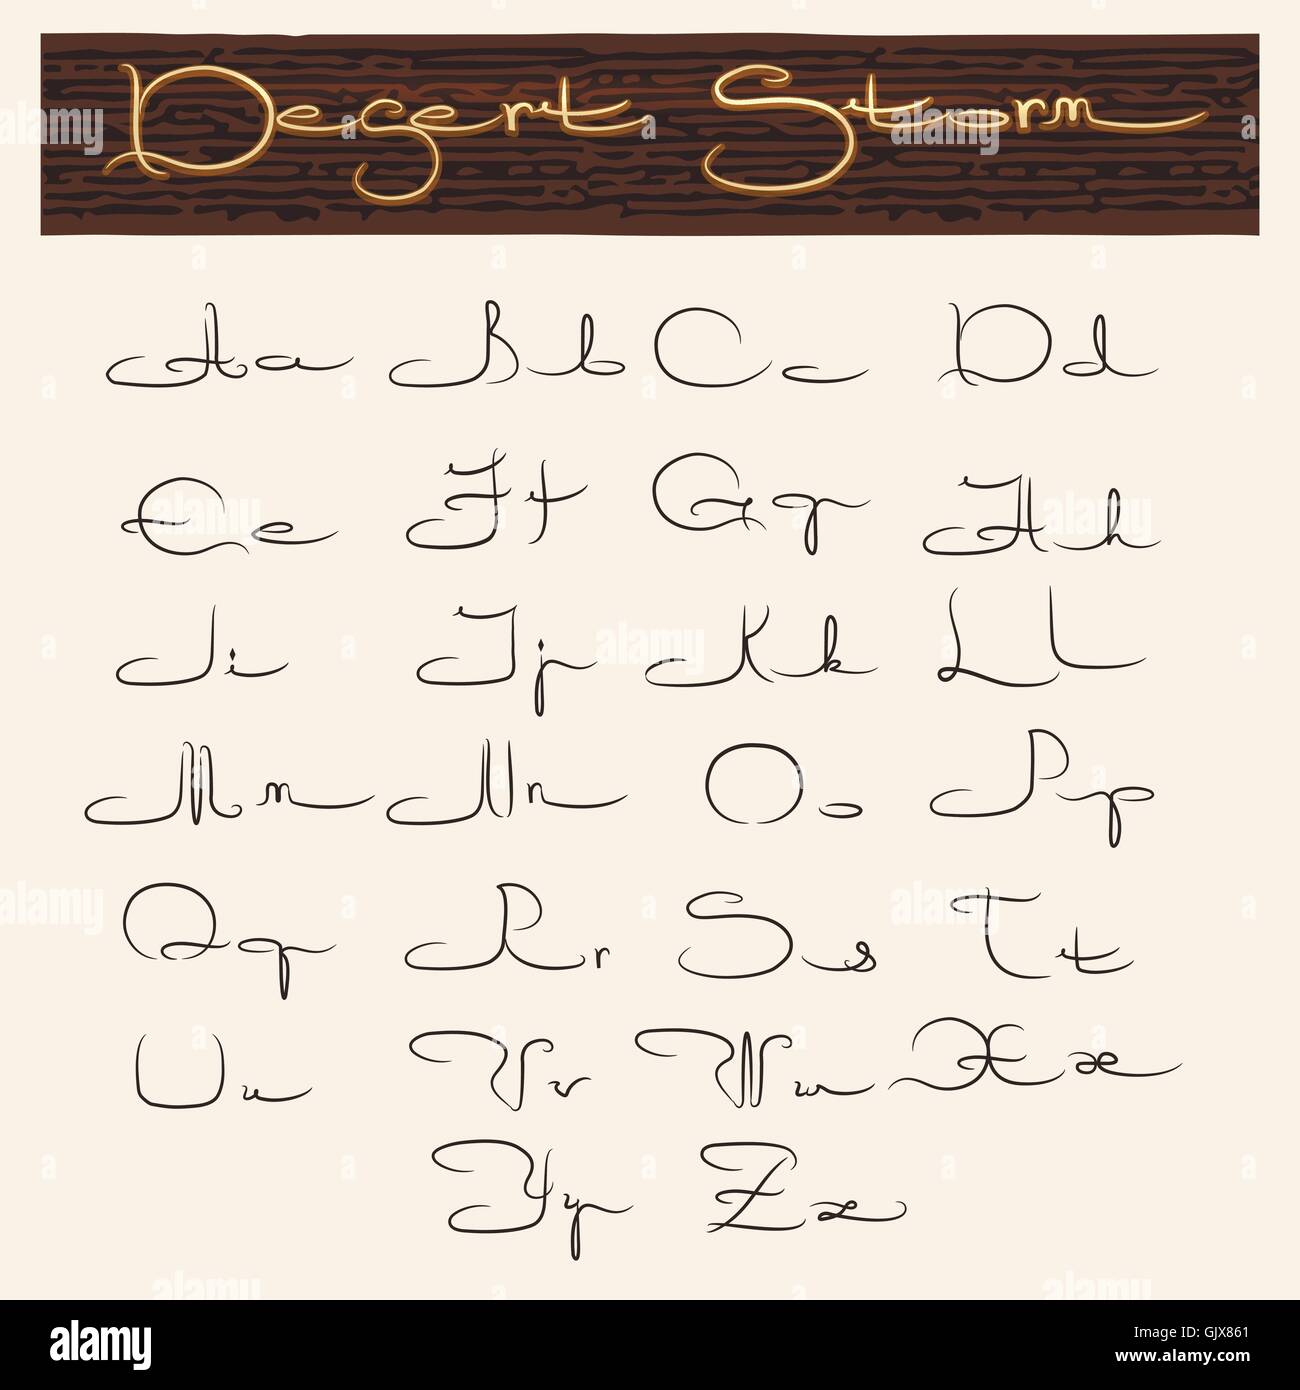 Desert Storm
Aa Bb Cc Dd
Ee Ff Gg Hh
Ii Jj Kk Ll
Mm Nn Oo Pp
Qq Rr Ss Tt
Uu Vv Ww Xx
Yy Zz
alamy
Image ID: GJX861
www.alamy.com